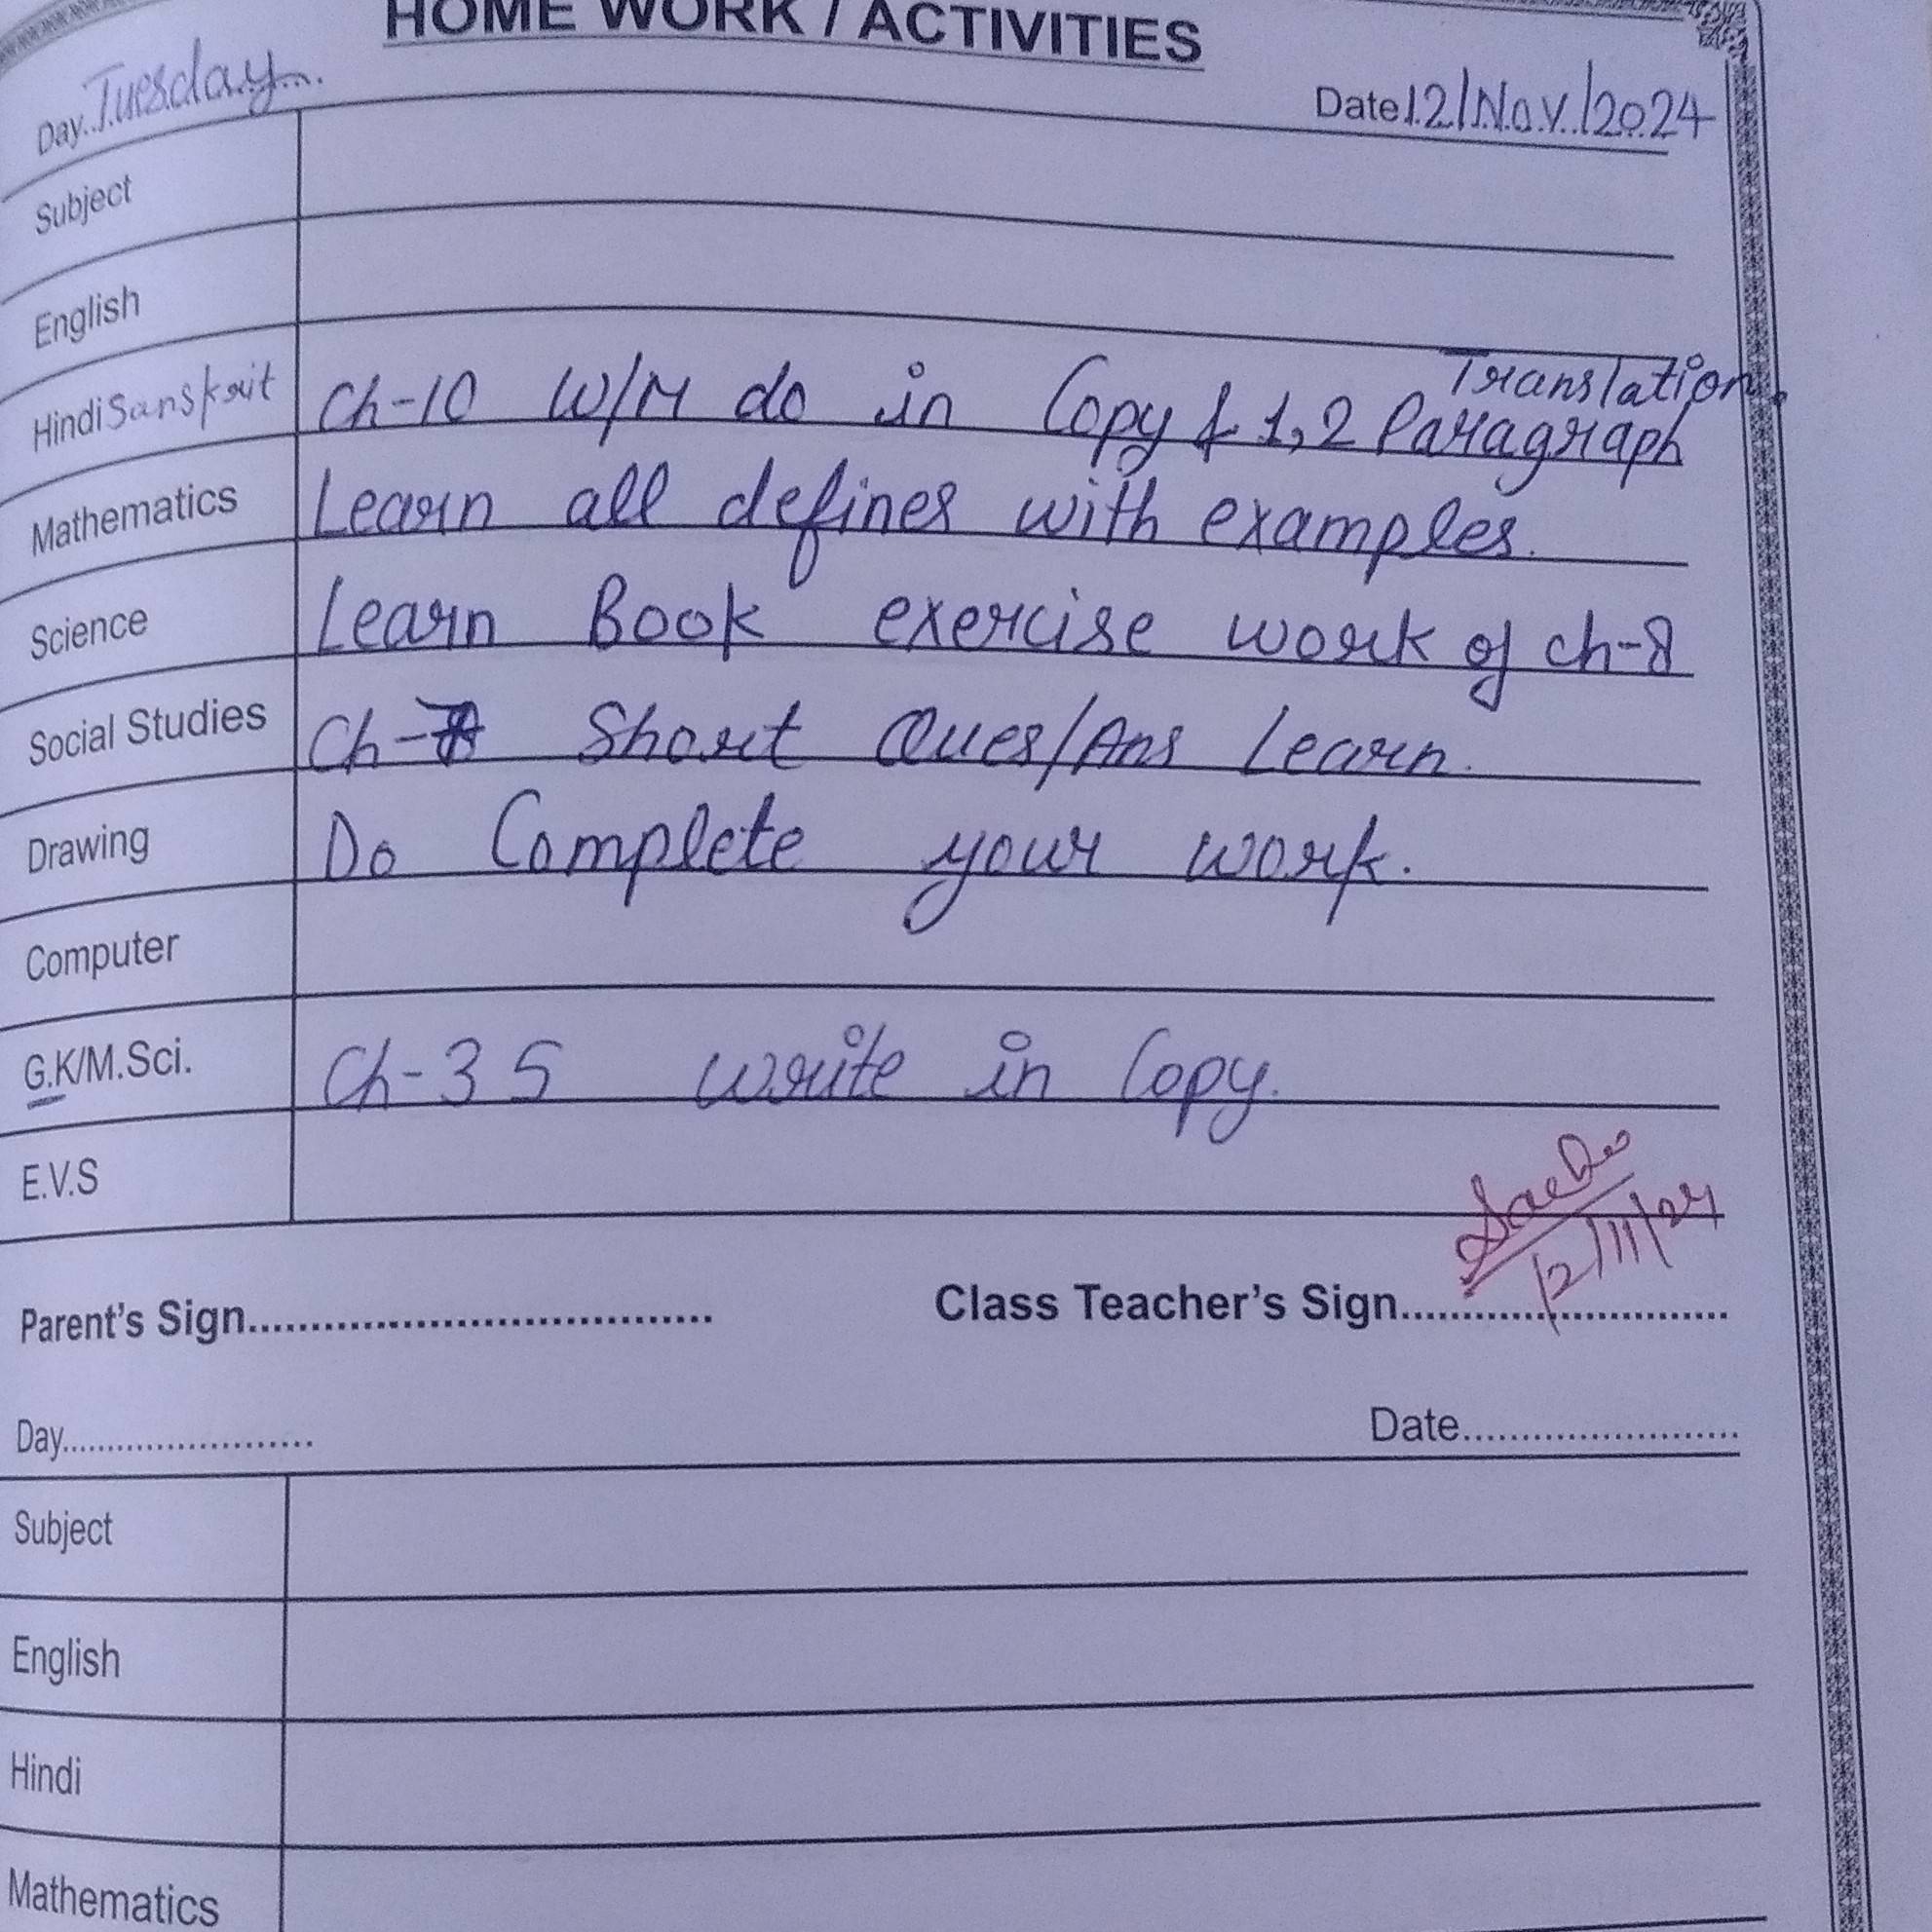 HOME WORK / ACTIVITIES
Day..Tuesday... Date 12/Nov./2024
Subject
English
Translation.
Hindi Sanskrit Ch-10 W/M do in Copy & 1,2 Paragraph
Mathematics Learn all defines with examples.
Science Learn Book exercise work of ch-8
Social Studies Ch-7 Short Ques/Ans Learn.
Drawing Do Complete your work.
Computer
G.K/M.Sci. Ch-35 write in Copy.
E.V.S
12/11/24
Parent's Sign.................................... Class Teacher's Sign............................
Day......................... Date.........................
Subject
English
Hindi
Mathematics